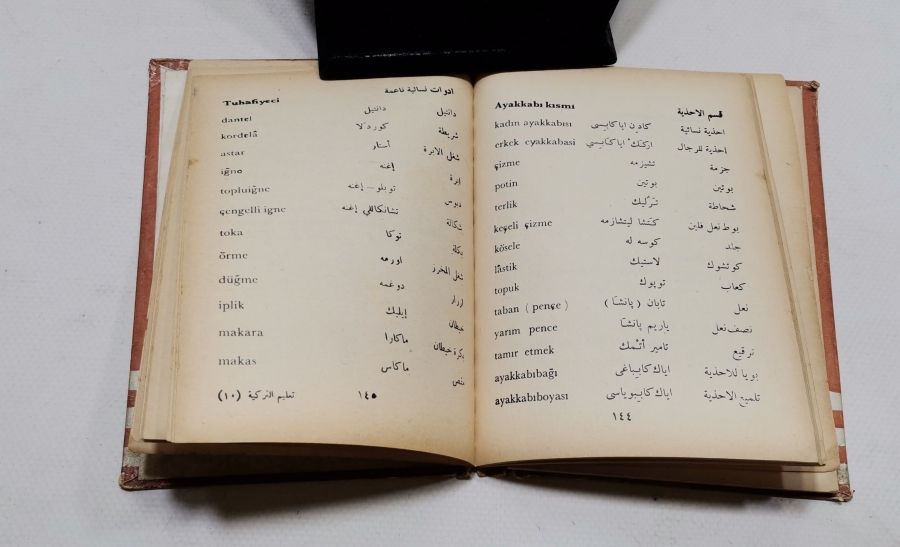 Ayakkabı kısmı قسم الاحذية
kadın ayakkabısı كادن اياكابيسى احذية نسائية
erkek eyakkabasi احذية للرجال
çizme تشيزمه جزمة
potin بوتين بوتين
terlik شحاطة
keçeli çizme بوط نعل فلين
kösele كوسه له جلد
lâstik لاستيك كوتشوك
topuk توپوك كعاب
taban ( pençe ) تابان ( پانشا ) نعل
yarım pence ياريم پانشا نصف نعل
tamır etmek تامير أتمك ترقيع
ayakkabıbağı اياك كابيباغى بويا للاحذية
ayakkabıboyası اياك كابيبوياسى تلميع الاحذية
١٤٤
Tuhafiyeci ادوات نسائية ناعمة
dantel دانتيل دانتيل
kordelâ كوردلا شريطة
astar أستار شغل الابرة
iğne إغنه ابرة
topluiğne توبلو – إغنه دبوس
çengelli igne تشانكاللي إغنه شكالة
toka توكا بكلة
örme اورمه شغل المخرز
düğme دوغمه ازرار
iplik إيپليك خيطان
makara ماكارا بكرة خيطان
makas ماكاس مقص
تعليم التركية (١٠) ١٤٥